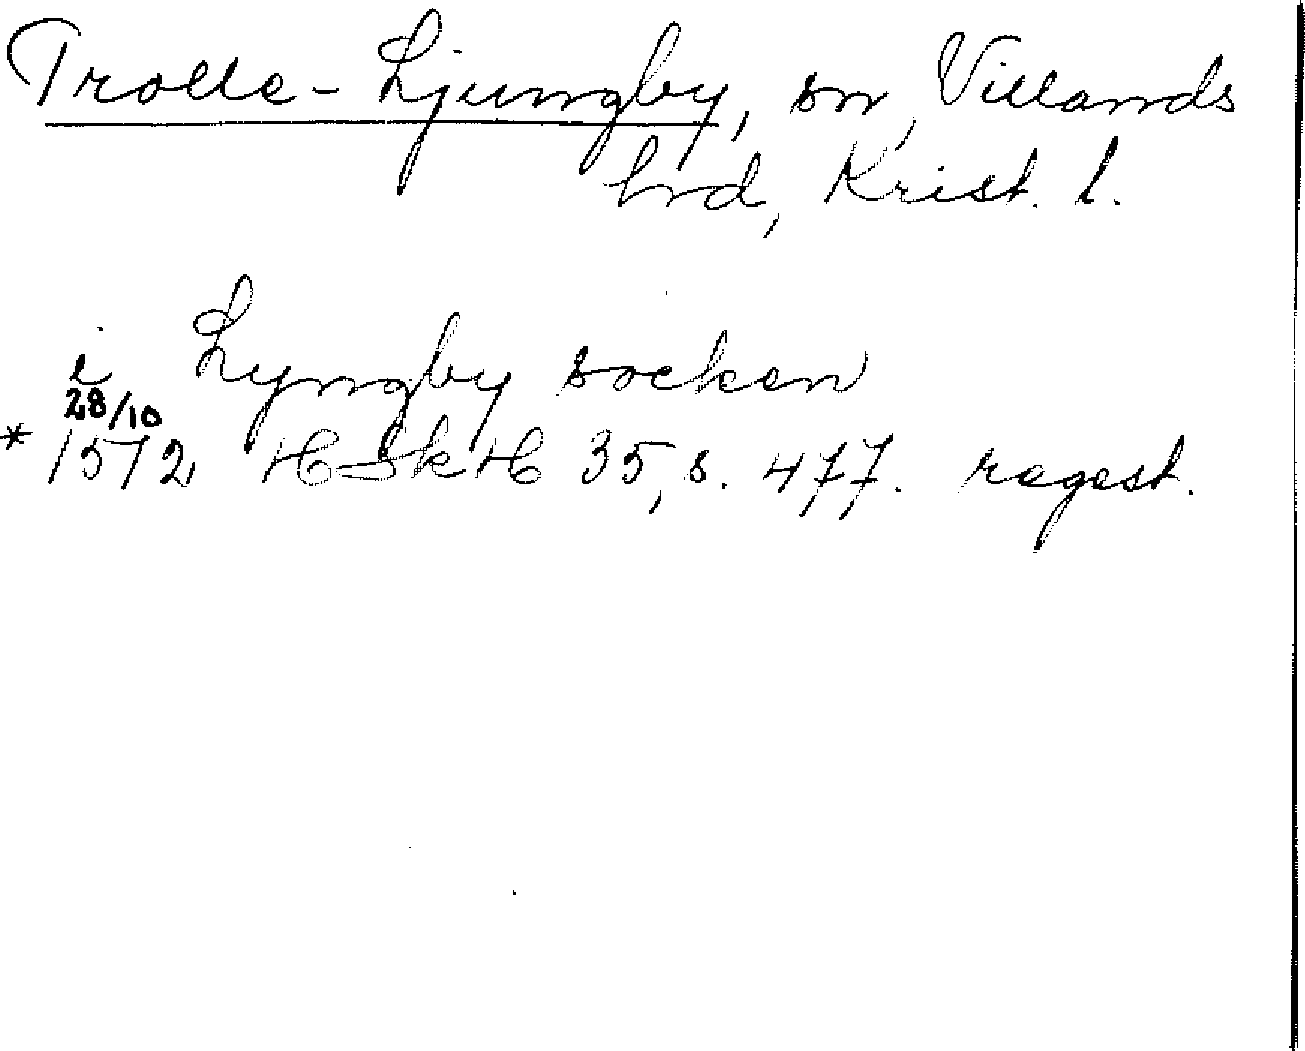 Trolle-Ljungby, sn, Villands
hrd, Krist. l.
i Lyngby socken
28/10
* 1572 HSkH 35, s. 477. regest.